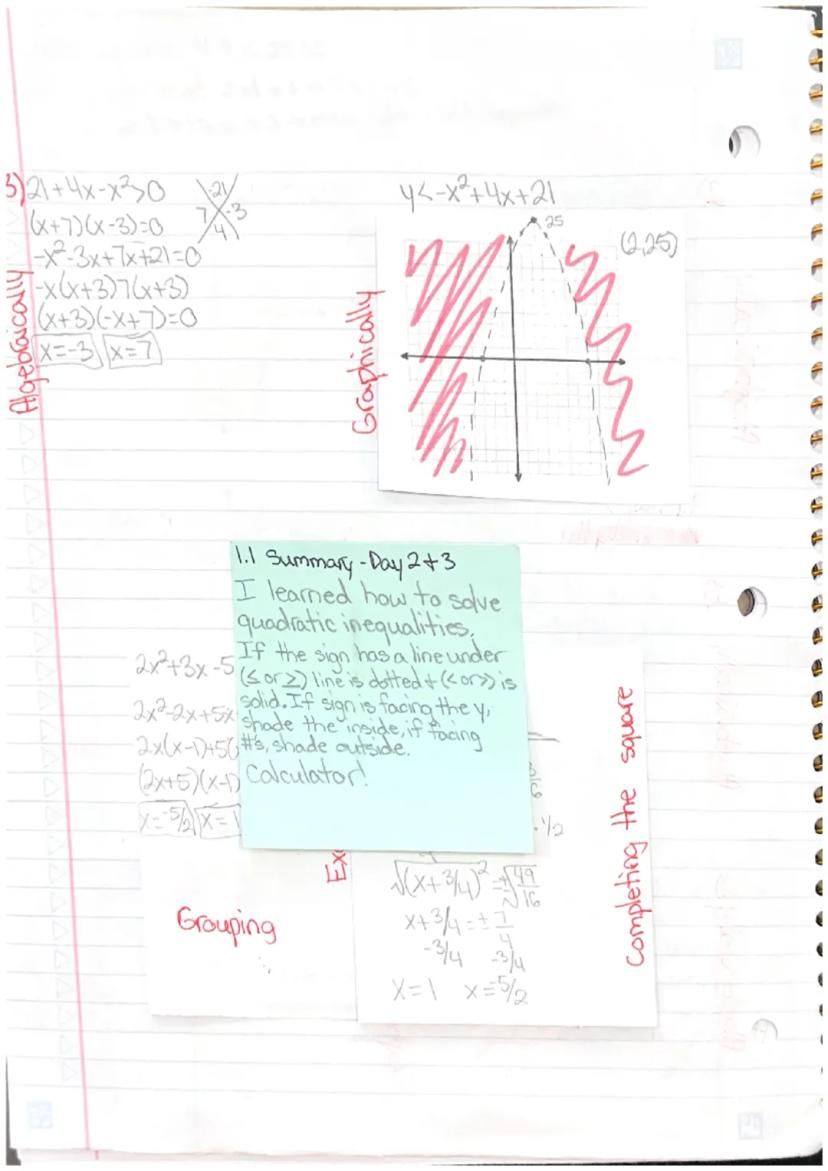 3) 21+4x-x²>0
(x+7)(x-3)=0
-x²-3x+7x+21=0
-x(x+3)7(x+3)
(x+3)(-x+7)=0
x=-3 x=7
-21
7 -3
4
Algebraically
y<-x²+4x+21
25
(2,25)
Graphically
1.1 Summary - Day 2+3
I learned how to solve
quadratic inequalities.
If the sign has a line under
(≤ or ≥) line is dotted + (< or >) is
solid. If sign is facing the y,
shade the inside, if facing
#'s, shade outside.
Calculator!
2x²+3x-5
2x²-2x+5x
2x(x-1)+5(
(2x+5)(x-1)
x=-5/2 x=1
Grouping
Ex
· 1/2
√(x+3/4)²=±√49/16
x+3/4=±7/4
-3/4 -3/4
x=1 x=-5/2
Completing the square